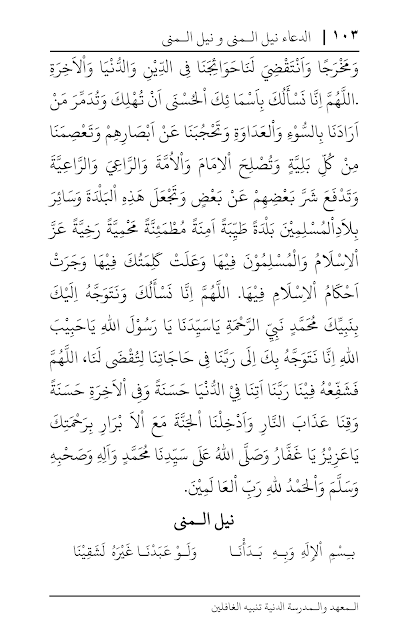 ١٠٣ | الدعاء نيل الـمنى و نيل الـمنى
وَمَخْرَجًا وَاَنْتَقْضِيَ لَنَاحَوَائِجَنَا فِى الدِّيْنِ وَالدُّنْيَا وَاْلاٰخِرَةِ
.اللّٰهُمَّ اِنَّا نَسْأَلُكَ بِاَسْمَا ئِكَ اْلحُسْنَى اَنْ تُهْلِكَ وَتُدَمِّرَ مَنْ
اَرَادَنَا بِالسُّوْءِ وَاْلعَدَاوَةِ وَتَحْجُبَنَا عَنْ اَبْصَارِهِمْ وَتَعْصِمَنَا
مِنْ كُلِّ بَلِيَّةٍ وَتُصْلِحَ اْلاِمَامَ وَاْلاُمَّةَ وَالرَّاعِيَ وَالرَّاعِيَّةَ
وَتَدْفَعَ شَرَّ بَعْضِهِمْ عَنْ بَعْضٍ وَتَجْعَلَ هَذِهِ اْلبَلْدَةَ وَسَائِرَ
بِلاَدِاْلمُسْلِمِيْنَ بَلْدَةً طَيِّبَةً اٰمِنَةً مُطْمَئِنَّةً مَحْمِيَّةً رَخِيَّةً عَزَّ
اْلاِسْلَامُ وَالْمُسْلِمُوْنَ فِيْهَا وَعَلَتْ كَلِمَتُكَ فِيْهَا وَجَرَتْ
اَحْكَامُ اْلاِسْلَامِ فِيْهَا. اللّٰهُمَّ اِنَّا نَسْأَلُكَ وَنَتَوَجَّهُ اِلَيْكَ
بِنَبِيِّكَ مُحَمَّدٍ نَبِيِّ الرَّحْمَةِ يَاسَيِّدَنَا يَا رَسُوْلَ اللهِ يَاحَبِيْبَ
اللهِ اِنَّا نَتَوَجَّهُ بِكَ اِلَى رَبِّنَا فِى حَاجَاتِنَا لِتُقْضَى لَنَا، اللّٰهُمَّ
فَشَفِّعْهُ فِيْنَا رَبَّنَا اٰتِنَا فِيْ الدُّنْيَا حَسَنَةً وَفِى اْلاٰخِرَةِ حَسَنَةً
وَقِنَا عَذَابَ النَّارِ وَاَدْخِلْنَا اْلجَنَّةَ مَعَ اْلاَ بْرَارِ بِرَحْمَتِكَ
يَاعَزِيْزُ يَا غَفَّارُ وَصَلَّى اللهُ عَلَى سَيِّدِنَا مُحَمَّدٍ وَاٰلِهِ وَصَحْبِهِ
وَسَلَّمَ وَاْلحَمْدُ للهِ رَبِّ اْلعَا لَمِيْنَ.
نيل الـمنى
بِـسْمِ اْلإِلَهِ وَبِـهِ بَـدَأْنَـا وَلَــوْ عَبَدْنَـا غَيْرَهُ لَشَقِيْنَا
الـمعهد والـمدرسة الدنية تنبيه الغافلين